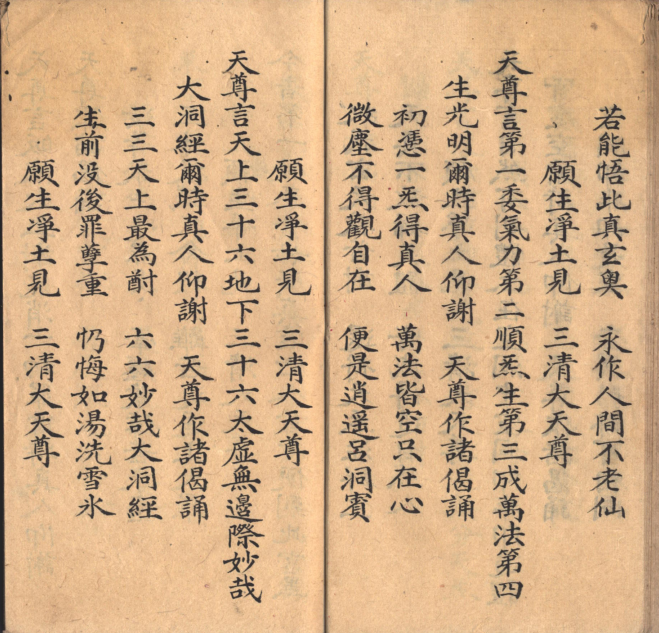 若能悟此真玄奧　永作人間不老仙
願生淨土見　三清大天尊
天尊言第一委氣力第二順炁生第三成萬法第四
生光明爾時真人仰謝　天尊作諸偈誦
初憑一炁得真人　萬法皆空只在心
微塵不得觀自在　便是逍遥呂洞賓
願生淨土見　三清大天尊
天尊言天上三十六地下三十六太虛無邊際妙哉
大洞經爾時真人仰謝　天尊作諸偈誦
三三天上最為酎　六六妙哉大洞經
生前没後罪孽重　仍悔如湯洗雪氷
願生淨土見　三清大天尊